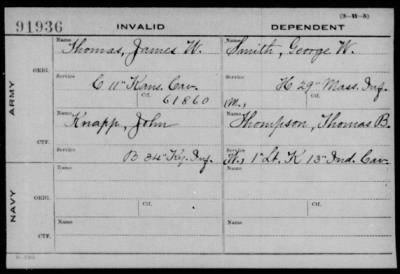 (3-111-3)
91936 INVALID DEPENDENT
Name Name
Thomas, James W. Smith, George W.
ORIG. Service Service
C 11" Kans. Cav. H 29" Mass. Inf.
Ctf. 61860 Ctf. (M.,
ARMY
Name Name
Knapp, John Thompson, Thomas B.
CTF. Service Service
B 34" Ky. Inf. 1" Lt. K 13" Ind. Cav.
Name Name
ORIG. Service
Ctf. Ctf.
NAVY
Name Name
CTF. Service Service